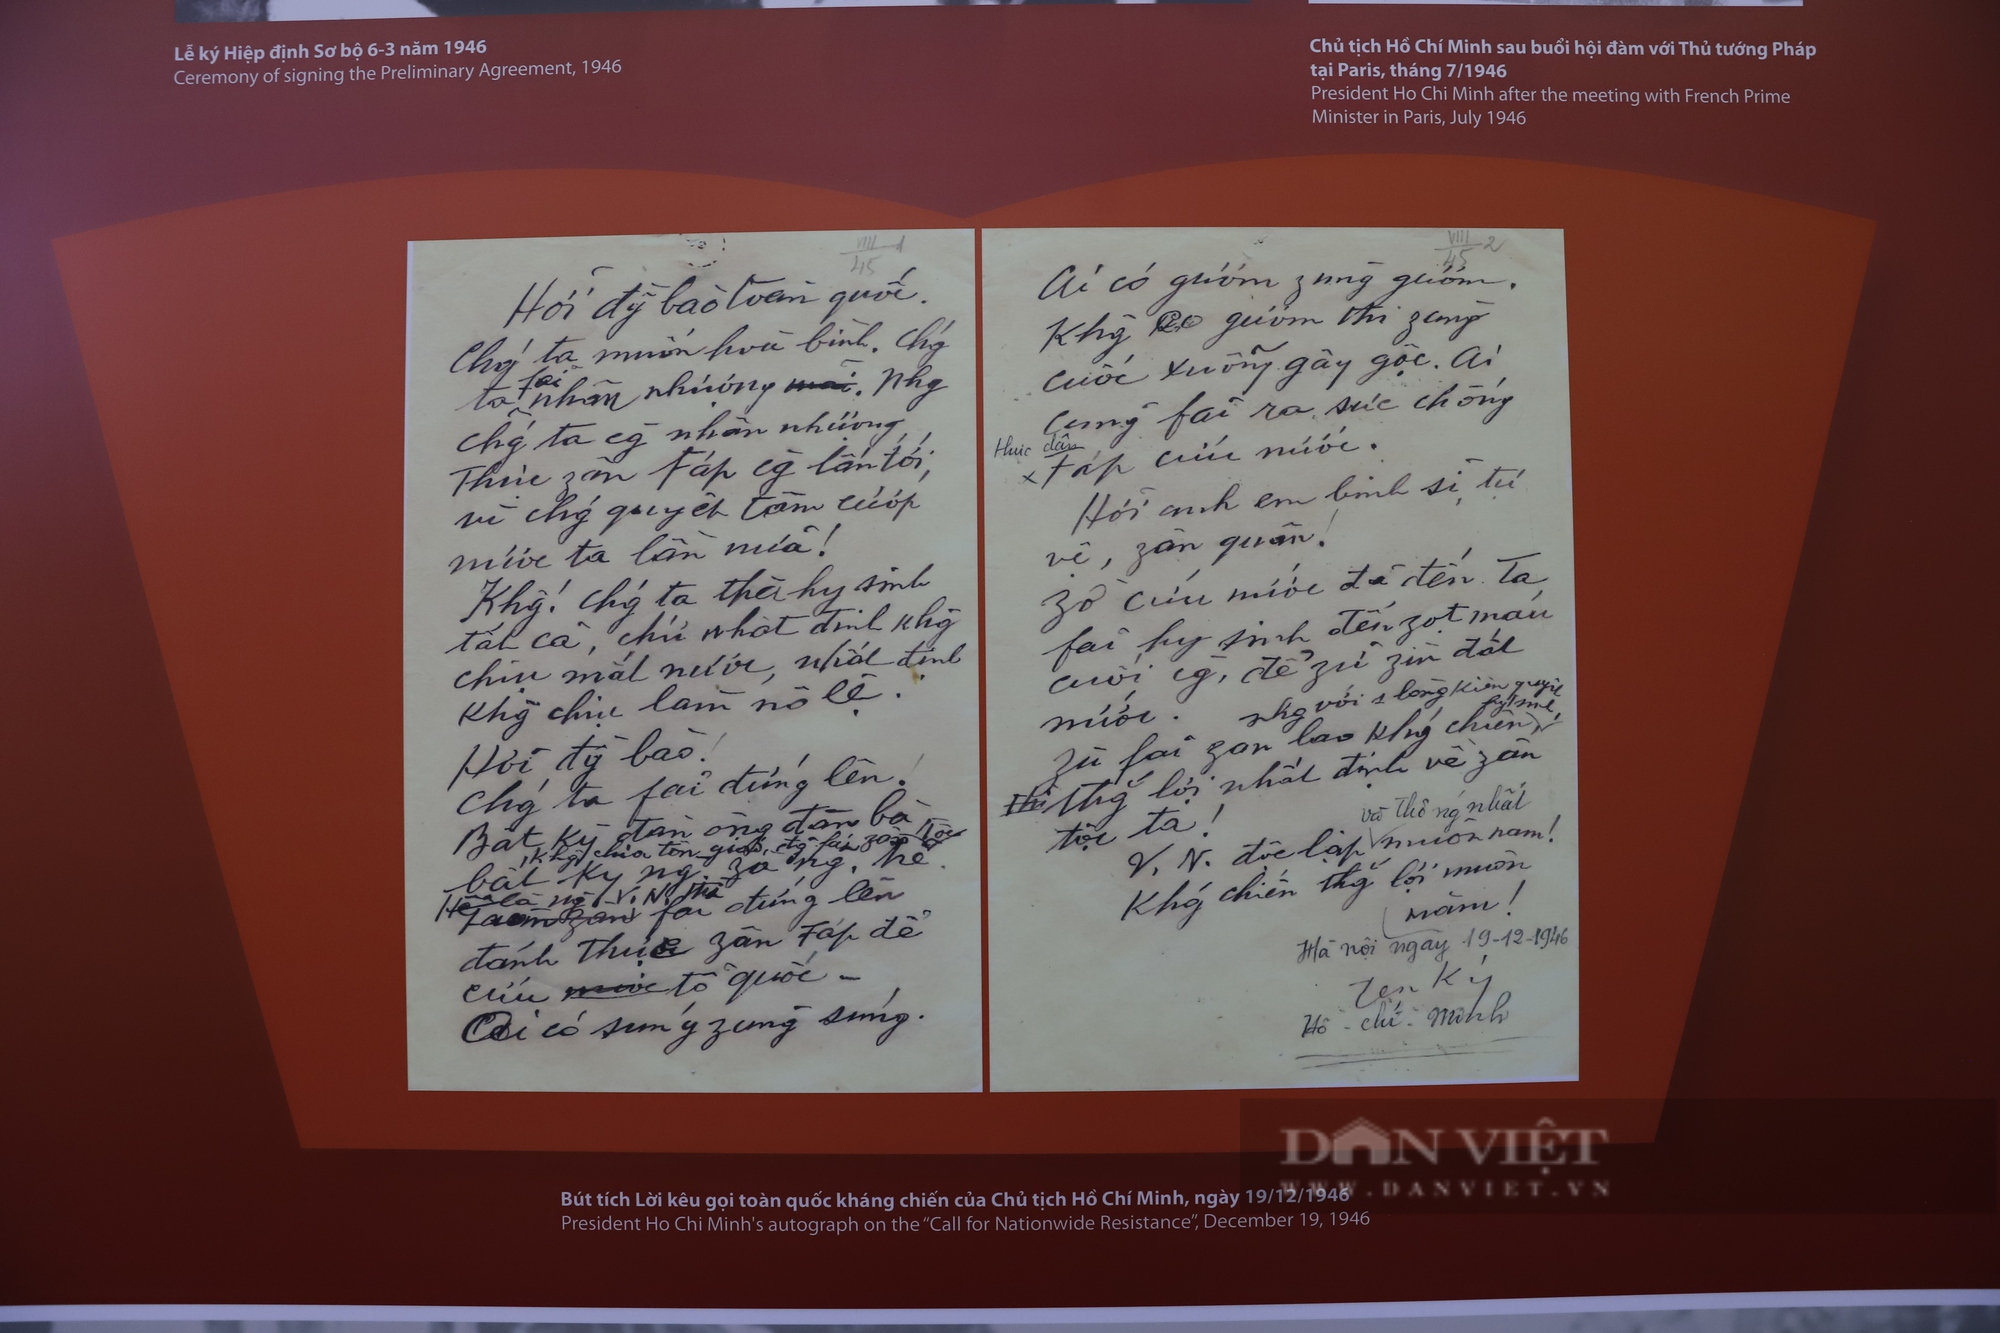 Lễ ký Hiệp định Sơ bộ 6-3 năm 1946
Ceremony of signing the Preliminary Agreement, 1946
Chủ tịch Hồ Chí Minh sau buổi hội đàm với Thủ tướng Pháp
tại Paris, tháng 7/1946
President Ho Chi Minh after the meeting with French Prime
Minister in Paris, July 1946
VIII 1
45
Hỡi đ̃g bào toàn quốc.
Chǵ ta muốn hoà bình. Chǵ
ta fải nhân nhượng. Nhg
chǵ ta cg̀ nhân nhượng,
Thực zân Fáp cg̀ lấn tới,
vì chǵ quyết tâm cướp
nước ta lần nữa!
Khĝ! Chǵ ta thà hy sinh
tất cả, chứ nhất định khĝ
chịu mất nước, nhất định
khĝ chịu làm nô lệ.
Hỡi đg̀ bào!
Chǵ ta fải đứng lên!
Bất kỳ đàn ông đàn bà
khĝ chia tôn giáo, đg̉ fái, zân tộc
bất kỳ ng. za ng. trẻ.
Hễ là ng̀ V.N. thì
fải đứng lên
đánh thực zân Fáp để
cứu tổ quốc –
Ai có súng zùng súng.
VIII 2
45
Ai có gươm zùng gươm.
Khĝ có gươm thì zùng
cuốc xuổng gậy gộc. Ai
cũng fải ra sức chống
thực dân
x Fáp cứu nước.
Hỡi anh em binh sĩ, tự
vệ, zân quân!
Zờ cứu nước đã đến. Ta
fải hy sinh đến zọt máu
cuối cg̀, để zữ zìn đất
nước.
nhg với 1 lòng kiên quyết
hy sinh
Zù fải zan lao khǵ chiến,
thǵ lợi nhất định về zân
tộc ta!
và thống nhất
V. N. độc lập muôn năm!
Khǵ chiến thǵ lợi muôn
năm!
Hà nội ngày 19-12-1946
Hồ - chí - Minh
DÂN VIỆT
WWW.DANVIET.VN
Bút tích Lời kêu gọi toàn quốc kháng chiến của Chủ tịch Hồ Chí Minh, ngày 19/12/1946
President Ho Chi Minh's autograph on the “Call for Nationwide Resistance”, December 19, 1946